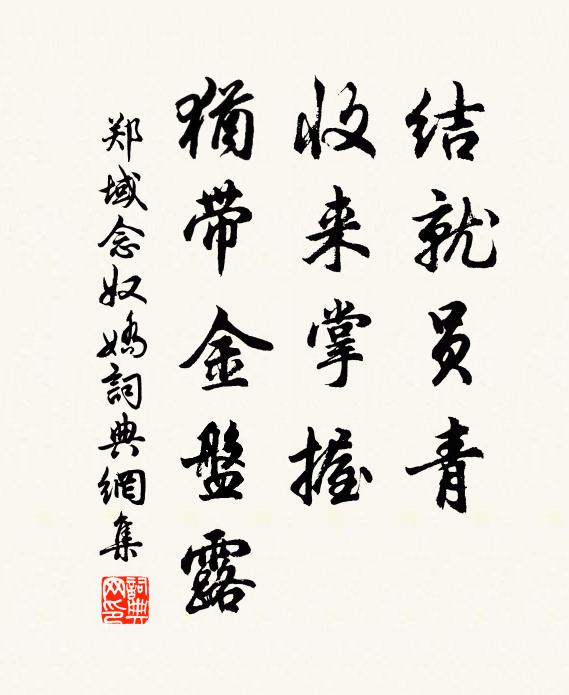 结就员青
收来掌握
犹带金盤露
郑域念奴嬌詞典網集
詞典网印